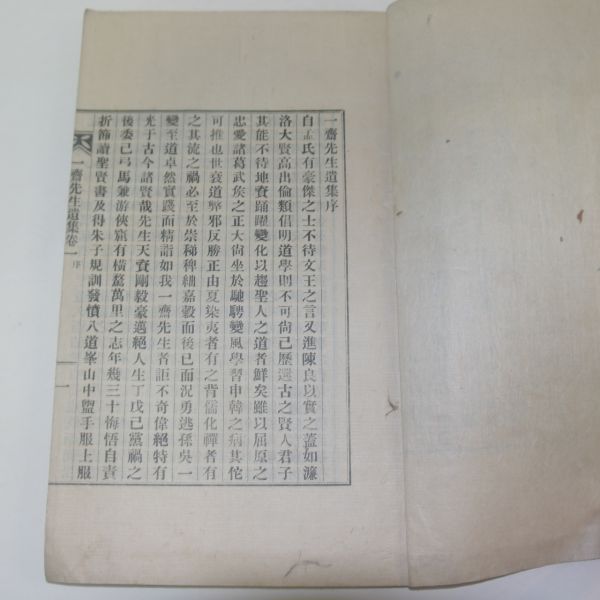 一齋先生遺集序
自孟氏有豪傑之士不待文王之言又進陳良以實之蓋如濂
洛大賢高出倫類倡明道學則不可尙已歷選古之賢人君子
其能不待地資踊躍變化以趨聖人之道者鮮矣雖以屈原之
忠愛諸葛武矦之正大尙坐於馳騁變風學習申韓之病其佗
可推也世衰道弊邪反勝正由夏染夷者有之背儒化禪者有
之其流之禍必至於崇稊稗細嘉穀而後已而況勇逃孫吳一
變至道卓然實踐而精詣如我一齋先生者詎不奇偉絕特有
光于古今諸賢哉先生天資剛毅豪邁絕人生丁戊己黨禍之
後委己弓馬兼游俠窟有橫騖萬里之志年幾三十悔悟自責
折節讀聖賢書及得朱子規訓發憤入道峯山中盥手服上服
一齋先生遺集卷一 序 一